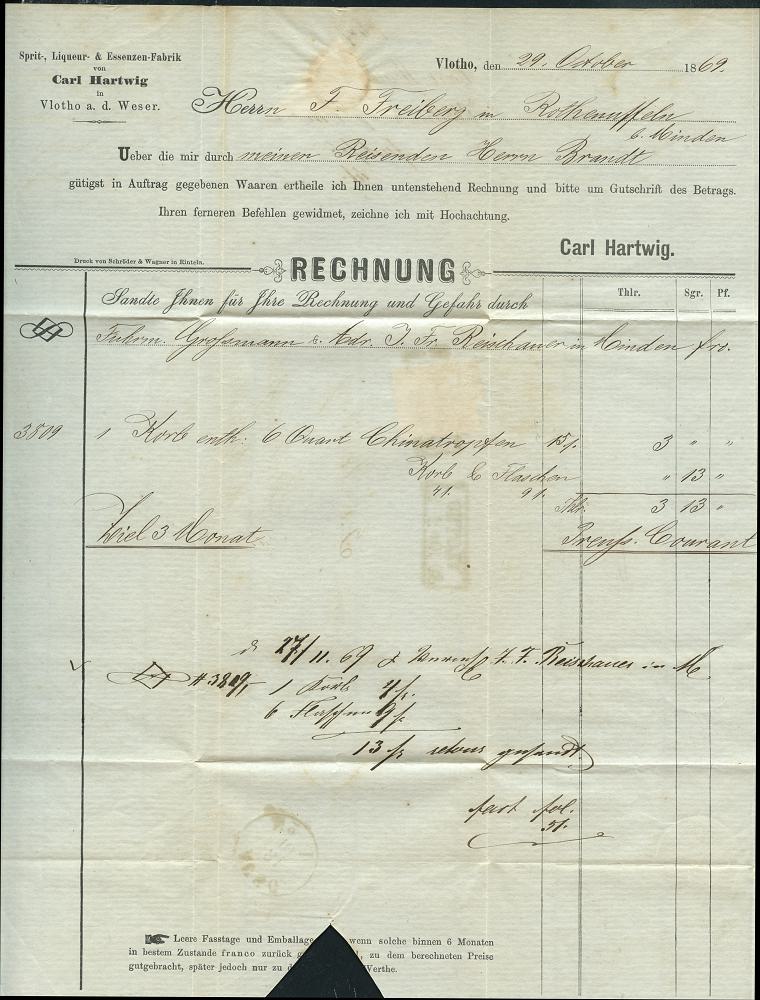 Sprit-, Liqueur- & Essenzen-Fabrik
von
Carl Hartwig
in
Vlotho a. d. Weser.
Vlotho, den 29. October 1869.
Herrn F. Freiberg in Rothenuffeln
b. Minden
Ueber die mir durch meinen Reisenden Herrn Brandt
gütigst in Auftrag gegebenen Waaren ertheile ich Ihnen untenstehend Rechnung und bitte um Gutschrift des Betrags.
Ihren ferneren Befehlen gewidmet, zeichne ich mit Hochachtung.
Carl Hartwig.
Druck von Schröder & Wagner in Rinteln.
RECHNUNG
Thlr. Sgr. Pf.
Sandte Ihnen für Ihre Rechnung und Gefahr durch
Fuhrm. Grossmann & Adr. J. Fr. Reischauer in Minden fro.
3809 1 Korb enth: 6 Quart Chinatropfen 15 3 " "
Korb & Flaschen " 13 "
4 9
Thlr. 3 13 "
Ziel 3 Monat Preuss. Courant
27/11. 69 F. Reischauer in M.
# 3809, 1 Korb 4
6 Flaschen 9
13 retour gesandt.
fact fol.
51.
Leere Fasstage und Emballage wenn solche binnen 6 Monaten
in bestem Zustande franco zurück zu dem berechneten Preise
gutgebracht, später jedoch nur zu Werthe.